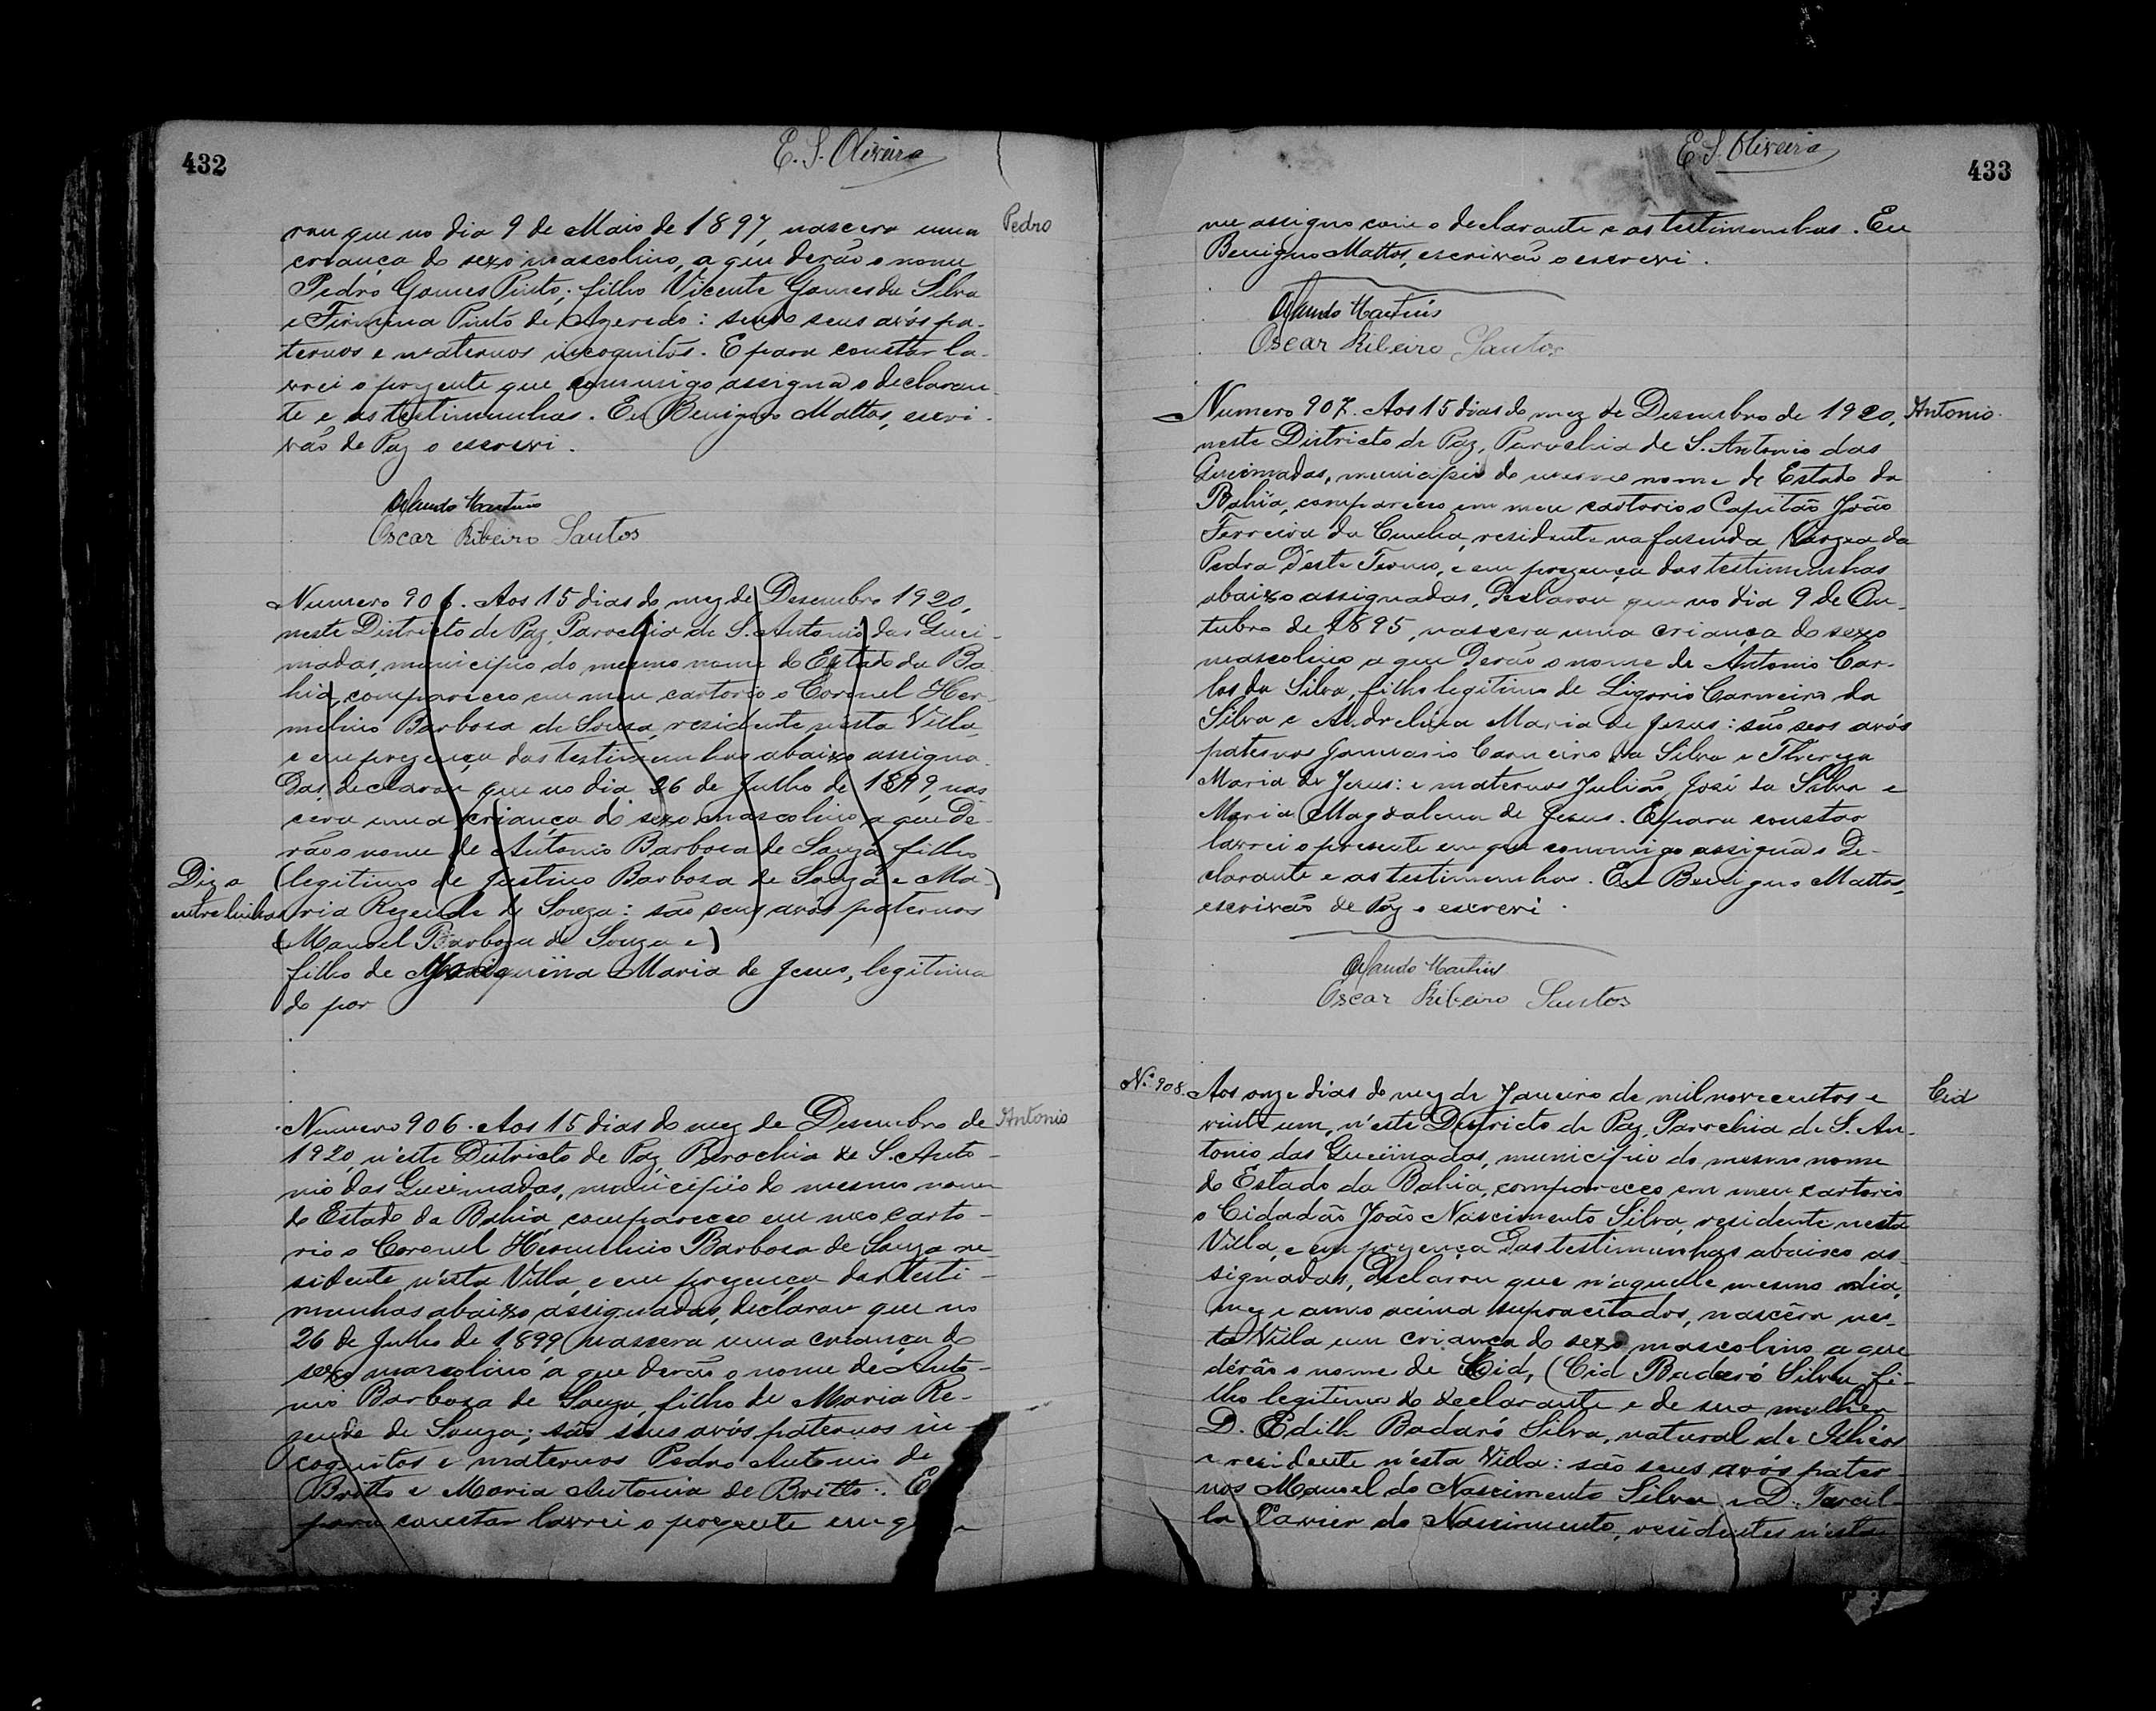 432
E. S. Oliveira
rou que no dia 9 de Maio de 1897, nascera uma
Pedro
criança do sexo masculino, a que derão o nome
Pedro Gomes Pinto; filho Vicente Gomes da Silva
e Firmina Pinto de Azeredo: sendo seus avós pa-
ternos e maternos incognitos. E para constar la-
vrei o prezente que commigo assigna o declaran
te e as testimunhas. Eu Benigno Mattos, escri-
vão de Paz o escrevi.
Orlando Martins
Oscar Ribeiro Santos
Numero 906. Aos 15 dias do mez de Desembro 1920,
neste Districto de Paz, Parochia de S. Antonio das Quei-
madas, municipio do mesmo nome do Estado da Ba
hia, compareceo em meu cartorio o Coronel Her-
melino Barbosa de Sousa, residente nesta Villa,
e em prezença das testimunhas abaixo assigna-
das, declarou que no dia 26 de Julho de 1899, nas
cera uma criança do sexo masculino a que de-
rão o nome de Antonio Barbosa de Souza filho
Digo
(legitimo de Justino Barboza de Souza e Ma-)
entrelinhas
ria Rezende de Souza: são seus avós paternos
(Manoel Barboza de Souza e)
filho de Maria de Jesus, legitima
do por
Numero 906. Aos 15 dias do mez de Desembro de
Antonio
1920, n'este Districto de Paz, Parochia de S. Anto-
nio das Queimadas, municipio do mesmo nome
do Estado da Bahia, compareceo em meo carto-
rio o Coronel Hermelino Barbosa de Souza re-
sidente n'esta Villa, e em prezença das testi-
munhas abaixo assignadas, declarou que no
26 de Julho de 1899 nascera uma criança do
sexo masculino a que derão o nome de Anto-
nio Barboza de Souza, filho de Maria Re-
zende de Souza; são seus avós paternos in-
cognitos e maternos Pedro Antonio de
Britto e Maria Antonia de Britto. E
para constar lavrei o prezente em q
E. S. Oliveira
433
me assigno com o declarante e as testimunhas. Eu
Benigno Mattos, escrivão o escrevi.
Orlando Martins
Oscar Ribeiro Santos
Numero 907. Aos 15 dias do mez de Desembro de 1920,
Antonio
neste Districto de Paz, Parochia de S. Antonio das
Queimadas, municipio do mesmo nome do Estado da
Bahia, compareceo em meu cartorio o Capitão João
Ferreira da Cunha, residente na fasenda Varzea da
Pedra d'este Termo, e em prezença das testimunhas
abaixo assignadas, declarou que no dia 9 de Ou-
tubro de 1895, nascera uma criança do sexo
masculino a que derão o nome de Antonio Car-
los da Silva, filho legitimo de Ligorio Carneiro da
Silva e Andrelina Maria de Jesus: são seos avós
paternos Januario Carneiro da Silva e Thereza
Maria de Jesus: e maternos Julião José da Silva e
Maria Magdalena de Jesus. E para constar
lavrei o presente em que commigo assigna o de-
clarante e as testimunhas. Eu Benigno Mattos,
escrivão de Paz o escrevi.
Orlando Martins
Oscar Ribeiro Santos
Nº 908. Aos onze dias do mez de Janeiro de mil novecentos e
Cid
vinte um, n'este Districto de Paz, Parochia de S. An-
tonio das Queimadas, municipio do mesmo nome
do Estado da Bahia, compareceo em meu cartorio
o Cidadão João Nascimento Silva, residente nesta
Villa, e em prezença das testimunhas abaixo as-
signadas, declarou que n'aquelle mesmo dia,
mez e anno acima supracitados, nascêra nes-
ta Villa um criança do sexo masculino a que
dérão o nome de Cid, (Cid Badaró Silva, fi-
lho legitimo do declarante e de sua mulher
D. Edith Badaró Silva, natural de Ilhéos
e residente n'esta Villa: são seus avós pater-
nos Manoel do Nascimento Silva e D. Tarcil-
la Xavier do Nascimento, residentes n'esta